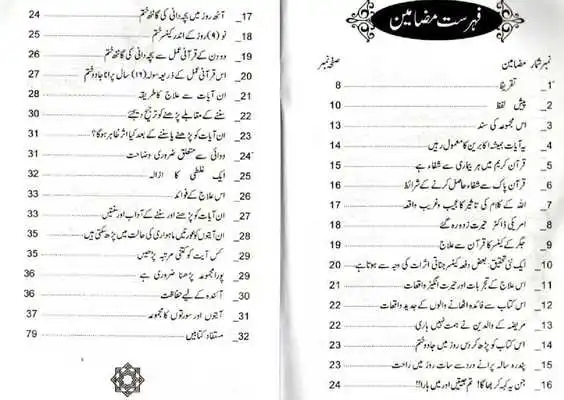 فہرست مضامین
نمبر شمار مضامین صفحہ نمبر
1_ تقریظ 8
2_ پیش لفظ 10
3_ اس مجموعہ کی سند 13
4_ یہ آیات ہمیشہ اکابرین کا معمول رہیں 14
5_ قرآن کریم میں ہر بیماری سے شفاء ہے 15
6_ قرآن پاک سے شفاء حاصل کرنے کے شرائط 16
7_ اللہ کے کلام کی تاثیر کا عجیب و غریب واقعہ 17
8_ امریکی ڈاکٹر حیرت زدہ رہ گئے 18
9_ جگر کے کینسر کا قرآن سے علاج 19
10_ ایک نئی تحقیق: بعض دفعہ کینسر جناتی اثرات کی وجہ سے ہوتا ہے 20
11_ اس علاج کے تجربات اور حیرت انگیز واقعات 21
12_ اس کتاب سے فائدہ اٹھانے والوں کے جدید واقعات 22
13_ مریضہ کے والدین نے ہمت نہیں ہاری 22
14_ اس کتاب کو پڑھ کر دس روز میں جادو ختم 23
15_ پندرہ سالہ پرانے درد سے سات روز میں راحت 23
16_ جن یہ کہہ کر بھاگا! تم جیتیں اور میں ہارا!! 24
17_ آٹھ روز میں بچہ دانی کی گانٹھ ختم 24
18_ نو (۹) روز کے اندر کینسر ختم 25
19_ دو دن کے قرآنی عمل سے بچہ دانی کی گانٹھ ختم 26
20_ اس قرآنی عمل کے ذریعہ سولہ (۱۶) سال پرانا جادو ختم 27
21_ ان آیات سے علاج کا طریقہ 28
22_ سننے کے مقابلے پڑھنے کو ترجیح دیجئے 30
23_ ان آیات کو پڑھنے یا سننے کے بعد کیا اثر ظاہر ہوگا؟ 31
24_ دوائی سے متعلق ضروری وضاحت 31
25_ ایک غلطی کا ازالہ 32
26_ اس علاج کے فوائد 33
27_ ان آیات کو پڑھنے اور سننے کے آداب اور سنتیں 33
28_ ان آیتوں کو عورتیں ماہواری کی حالت میں پڑھ سکتی ہیں 35
29_ کس آیت کو کتنی مرتبہ پڑھیں 35
30_ پورا مجموعہ پڑھنا ضروری ہے 36
31_ آئندہ کے لیے حفاظت 36
_ آیتوں اور سورتوں کا مجموعہ 37
32_ مستفاد کتابیں 79